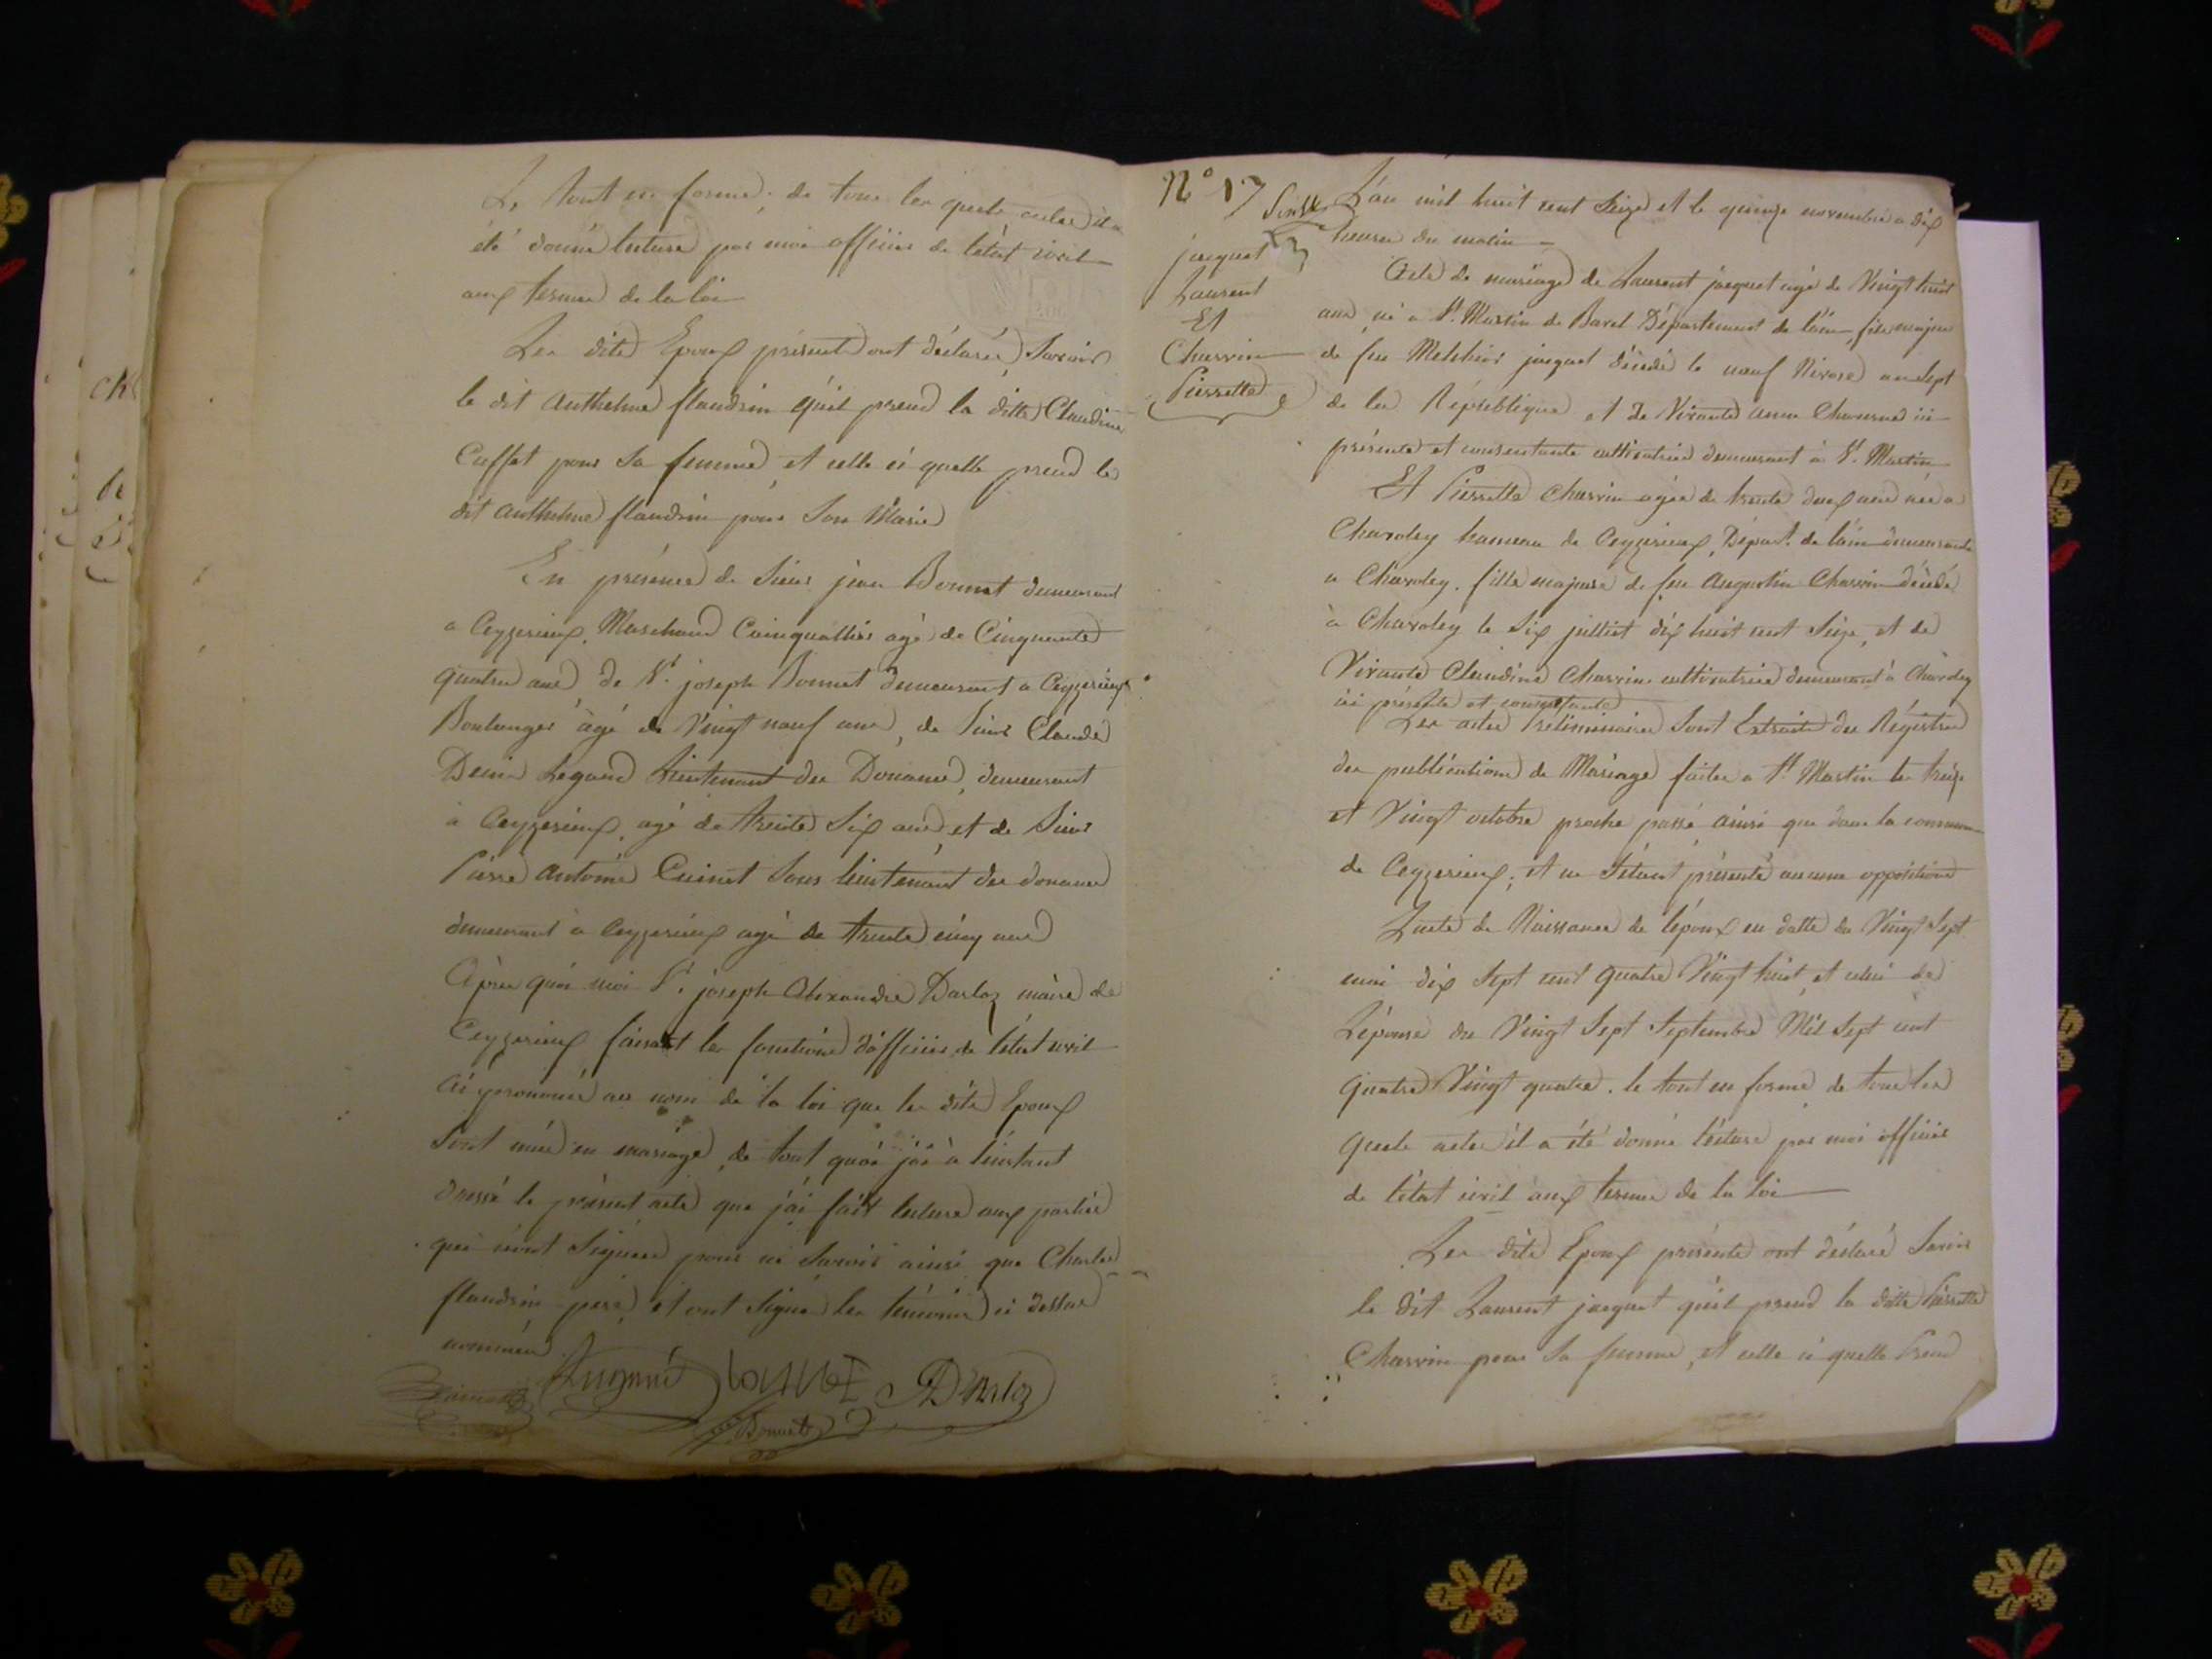 Le tout en forme; de tous les quels actes il a
été donné lecture par moi officier de l'état civil
aux termes de la loi
Les dits Epoux présents ont déclarés, Savoir
le dit Anthelme flandrin qu'il prend la ditte Claudine
Cuffet pour sa femme, et celle ci quelle prend le
dit Anthelme flandrin pour Son Marie
En présence de Sieur jean Bonnet demeurant
a Ceyzerieux, Marchand Cainquallier agé de Cinquante
quatre ans, de Sr. joseph Bonnet demeurant a Ceyzerieux
Boulanger âgé de Vingt neuf ans, de Sieur Claude
Denis Legand Lieutenant des Douanes, demeurant
à Ceyzerieux, agé de trente Six ans, et de Sieur
Pierre Antoine Cuinet Sous lieutenant des douanes
demeurant à Ceyzerieux agé de trente cinq ans
Après quoi moi Sr. joseph Alexandre Darloz maire de
Ceyzerieux faisant les fonctions d'officier de l'état civil
ai prononcé au nom de la loi que les dits Epoux
Sont unis en mariage, de tout quoi j'ai à l'instant
dressé le présent acte que j'ai fait lecture aux parties
qui n'ont Signées pour ne Savoir ainsi que Charles
flandrin père, et ont Signé les témoins ci dessus
nommés
Bonnet Darloz
Bonnet
N° 17
jacquet
Laurent
Et
Charvin
Pierrette
L'an mil huit cent Seize et le quinze novembre a dix
heures du matin
Acte de mariage de Laurent jacquet agé de Vingt huit
ans, né a St. Martin de Bavel Département de l'ain, fils majeur
de feu Melchior jacquet décédé le neuf Nivose an Sept
de la République et de Vivante anne Chavanne ici
présente et consentante cultivatrice demeurant à St. Martin
Et Pierrette Charvin agée de trente deux ans née a
Chavoley hameau de Ceyzerieux, Départ. de l'ain demeurante
a Chavoley. fille majeure de feu Augustin Charvin décédé
à Chavoley le Six juillet dix huit cent Seize, et de
Vivante Claudine Charvin cultivatrice demeurant à Chavoley
ici présente et consentante
Les actes Préliminaires Sont Extraits des Régistres
des publications de Mariage faites a St. Martin le treize
et Vingt octobre proche passé ainsi que dans la commune
de Ceyzerieux; et ne s'étant présenté aucune opposition
L'acte de Naissance de l'époux en datte du Vingt Sept
mai dix Sept cent quatre Vingt huit, et celui de
L'épouse du Vingt Sept Septembre Mil Sept cent
quatre Vingt quatre. le tout en forme, de tous les
quels actes il a été donné lecture par moi officier
de l'état civil aux termes de la loi
Les dits Epoux présents ont déclaré Savoir
le dit Laurent jacquet qu'il prend la ditte Pierrette
Charvin pour Sa femme, et celle ci quelle Prend